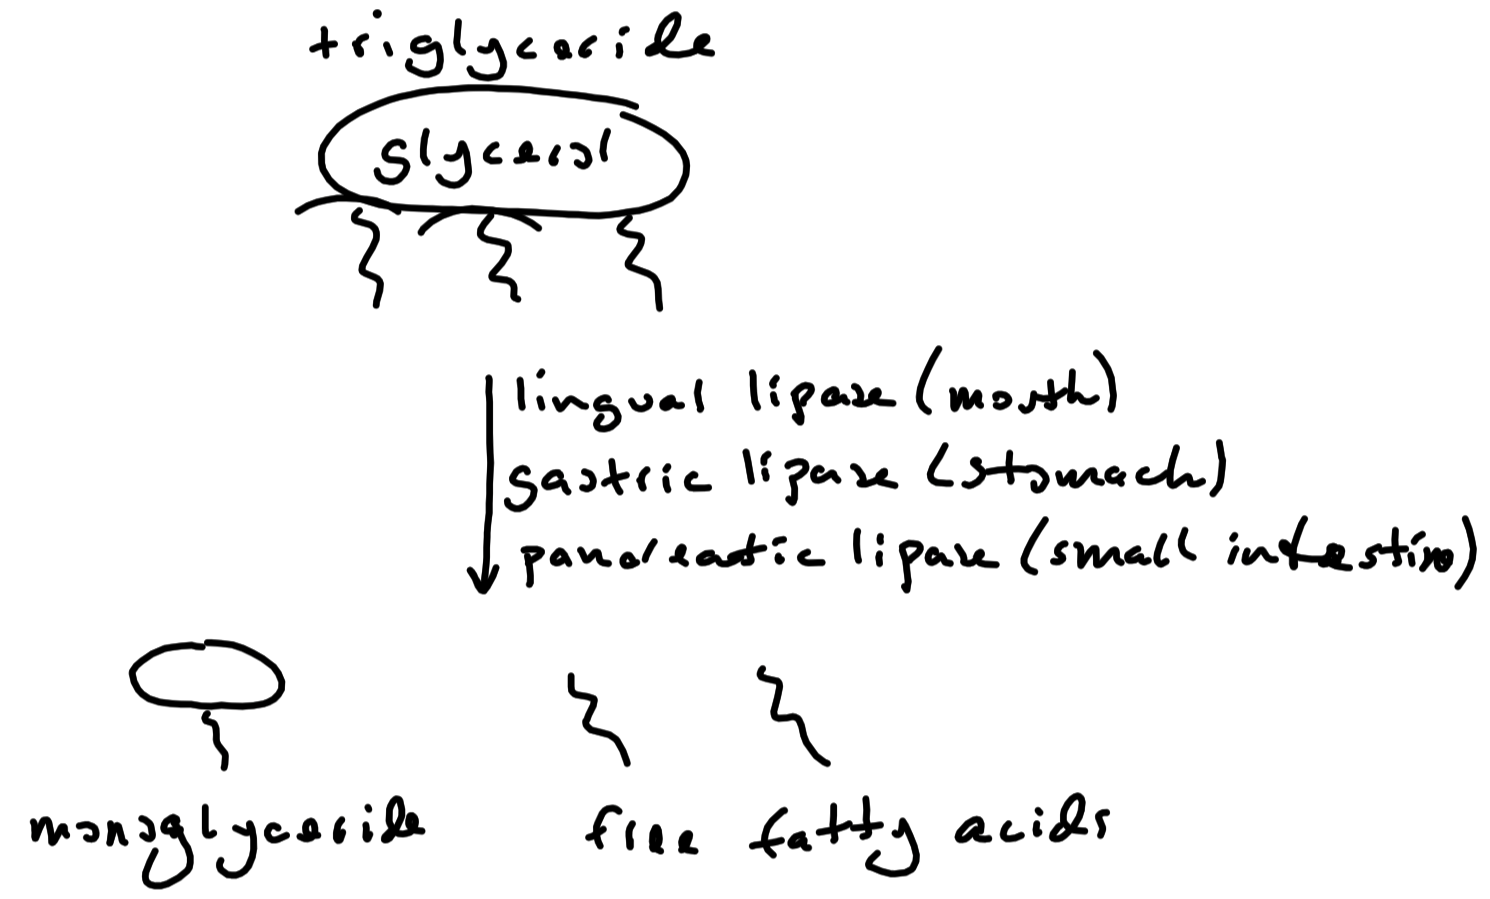 triglyceride
glycerol
lingual lipase (mouth)
gastric lipase (stomach)
pancreatic lipase (small intestine)
monoglyceride free fatty acids